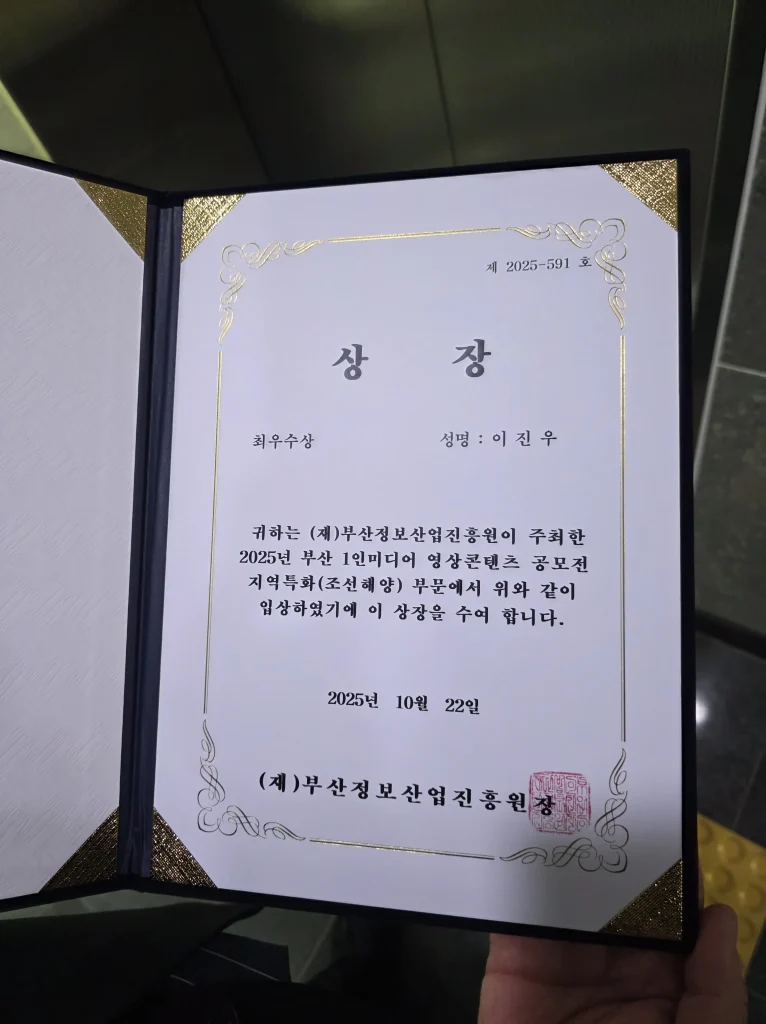 제 2025-591 호
상 장
최우수상 성명 : 이 진 우
귀하는 (재)부산정보산업진흥원이 주최한
2025년 부산 1인미디어 영상콘텐츠 공모전
지역특화(조선해양) 부문에서 위와 같이
입상하였기에 이 상장을 수여 합니다.
2025년 10월 22일
(재)부산정보산업진흥원장